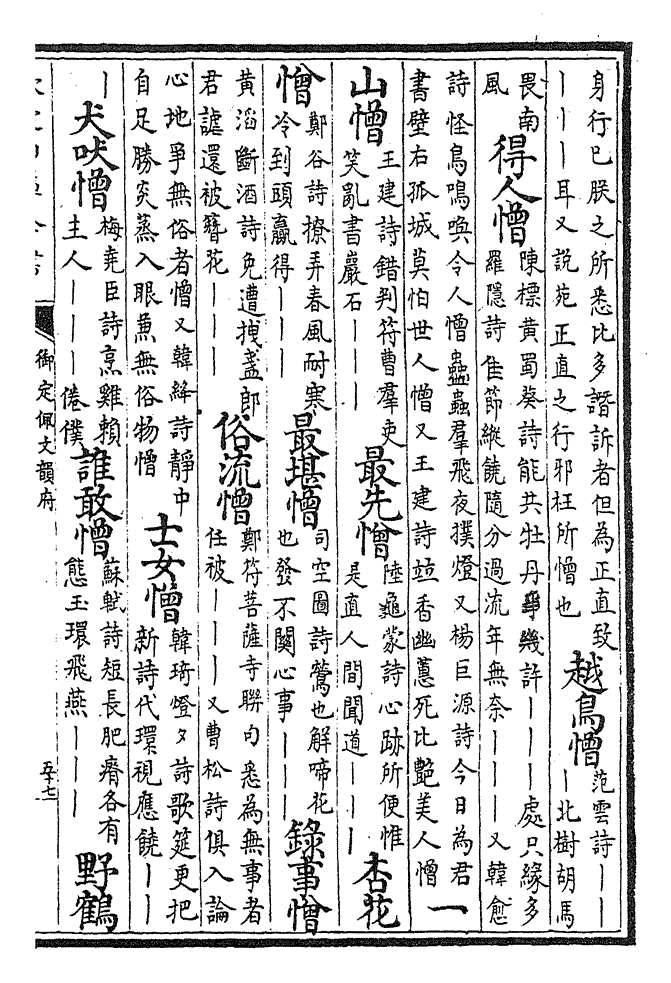 身行已朕之所悉比多譖訴者但為正直致
｜｜｜耳又說苑正直之行邪枉所憎也
越鳥憎
范雲詩｜｜
｜北樹胡馬
畏南
風
得人憎
陳標黃蜀葵詩能共牡丹爭幾許｜｜｜處只緣多
羅隱詩佳節縱饒隨分過流年無奈｜｜｜又韓愈
詩怪鳥鳴喚令人憎蠱蟲羣飛夜撲燈又楊巨源詩今日為君
書壁右孤城莫怕世人憎又王建詩竝香幽蕙死比艷美人憎
一
山憎
王建詩錯判符曹羣吏
笑亂書巖石｜｜
最先憎
陸龜蒙詩心跡所便惟
是直人間聞道｜｜｜
杏花
憎
鄭谷詩撩弄春風耐寒
冷到頭贏得｜｜｜
最堪憎
司空圖詩鶯也解啼花
也發不關心事｜｜｜
錄事憎
黃滔斷酒詩免遭拽盞郎
君謔還被簪花｜｜｜
俗流憎
鄭符菩薩寺聯句悉為無事者
任被｜｜｜又曹松詩俱入論
心地爭無俗者憎又韓絳詩靜中
自足勝炎蒸入眼兼無俗物憎
士女憎
韓琦燈夕詩歌筵更把
新詩代環視應饒｜｜
｜
犬吠憎
梅堯臣詩烹雞賴
主人｜｜｜倦僕
誰敢憎
蘇軾詩短長肥瘠各有
態玉環飛燕｜｜｜
野鶴
御定佩文韻府
五十七